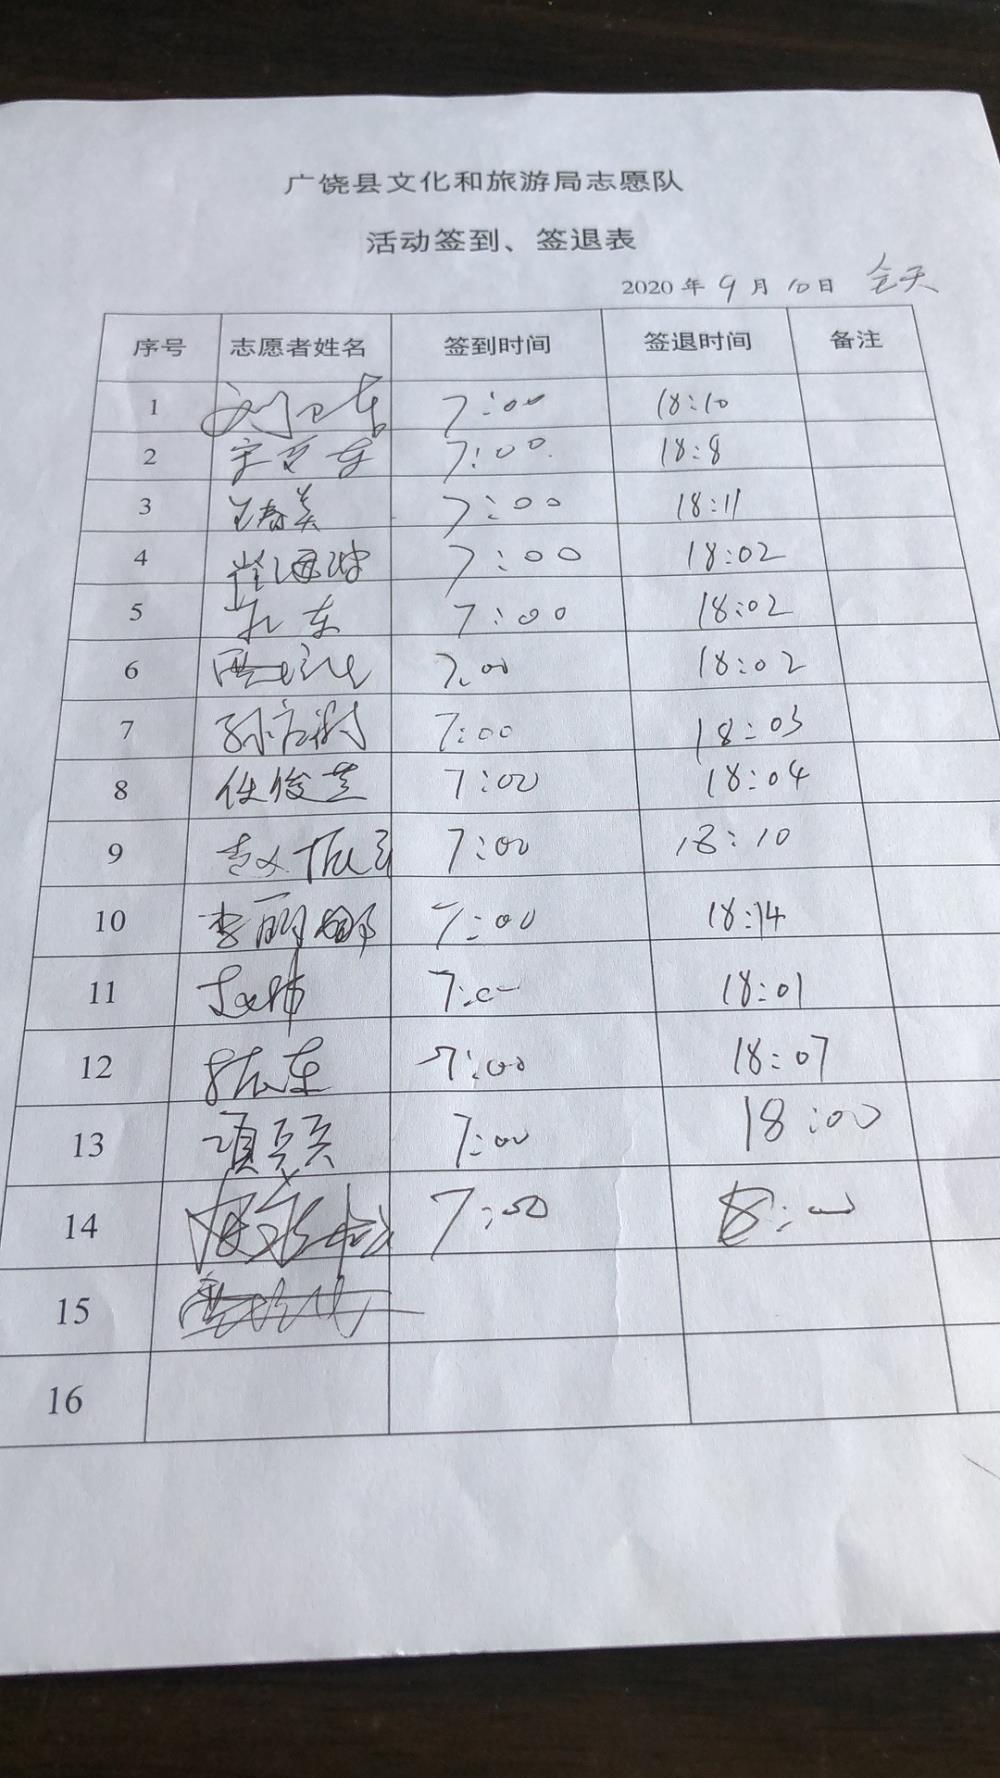 广饶县文化和旅游局志愿队
活动签到、签退表
2020 年 9 月 10 日 全天
序号 志愿者姓名 签到时间 签退时间 备注
1 刘卫东 7:00 18:10
2 7:00 18:8
3 王春美 7:00 18:11
4 崔海波 7:00 18:02
5 東 7:00 18:02
6 7:00 18:02
7 孙 7:00 18:03
8 任俊芝 7:00 18:04
9 赵振 7:00 18:10
10 李丽娜 7:00 18:14
11 7:00 18:01
12 7:00 18:07
13 项 7:00 18:00
14 7:00 18:00
15
16